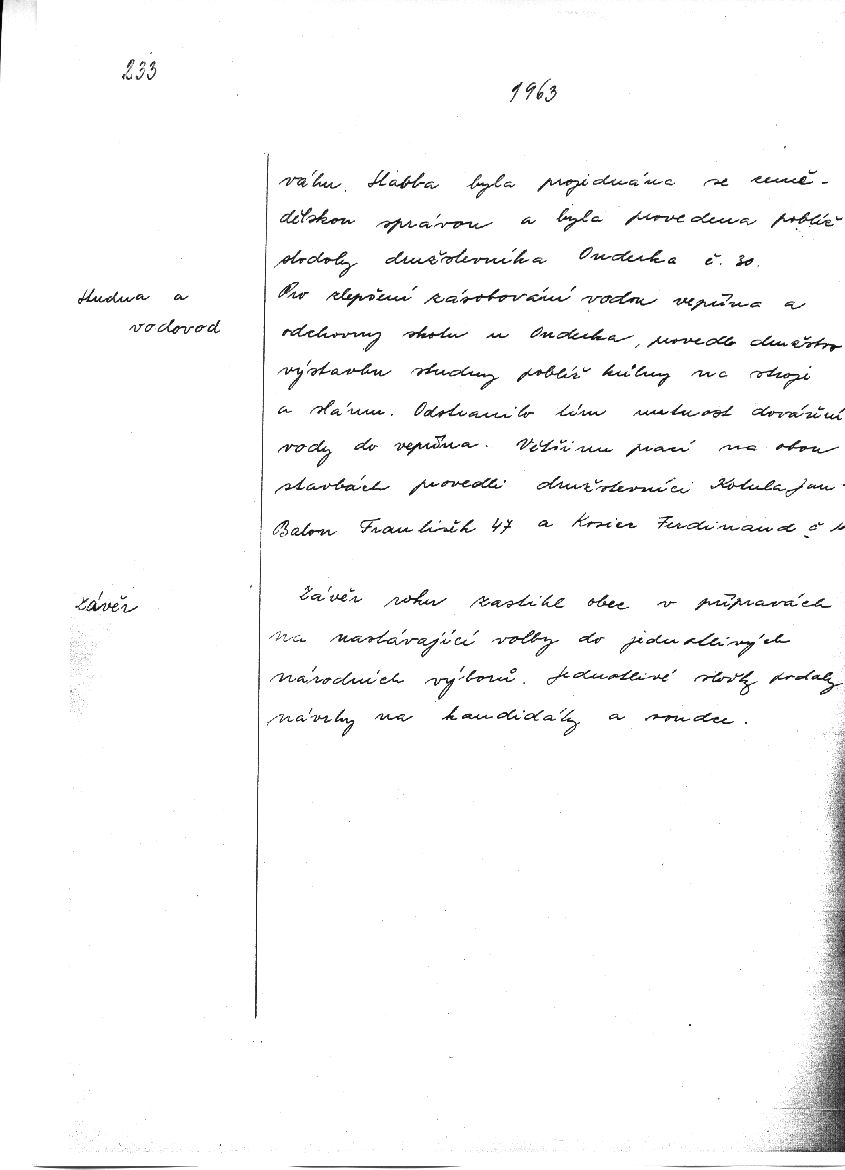 233
1963
váhu. Stavba byla projednána se země-
dělskou správou a byla provedena poblíž
stodoly družstevníka Onderka č. 30.
Studna a
vodovod
Pro zlepšení zásobování vodou vepřína a
odchovny skotu u Onderka, provedlo družstvo
výstavbu studny poblíž kůlny na stroji
a slámu. Odstranilo tím nutnost dovážení
vody do vepřína. Většinu prací na obou
stavbách provedli družstevníci Kotula Jan
Balon František 47 a Kosier Ferdinand č
Závěr
Závěr roku zastihl obec v přípravách
na nastávající volby do jednotlivých
národních výborů. Jednotlivé složky podaly
návrhy na kandidáty a soudce.